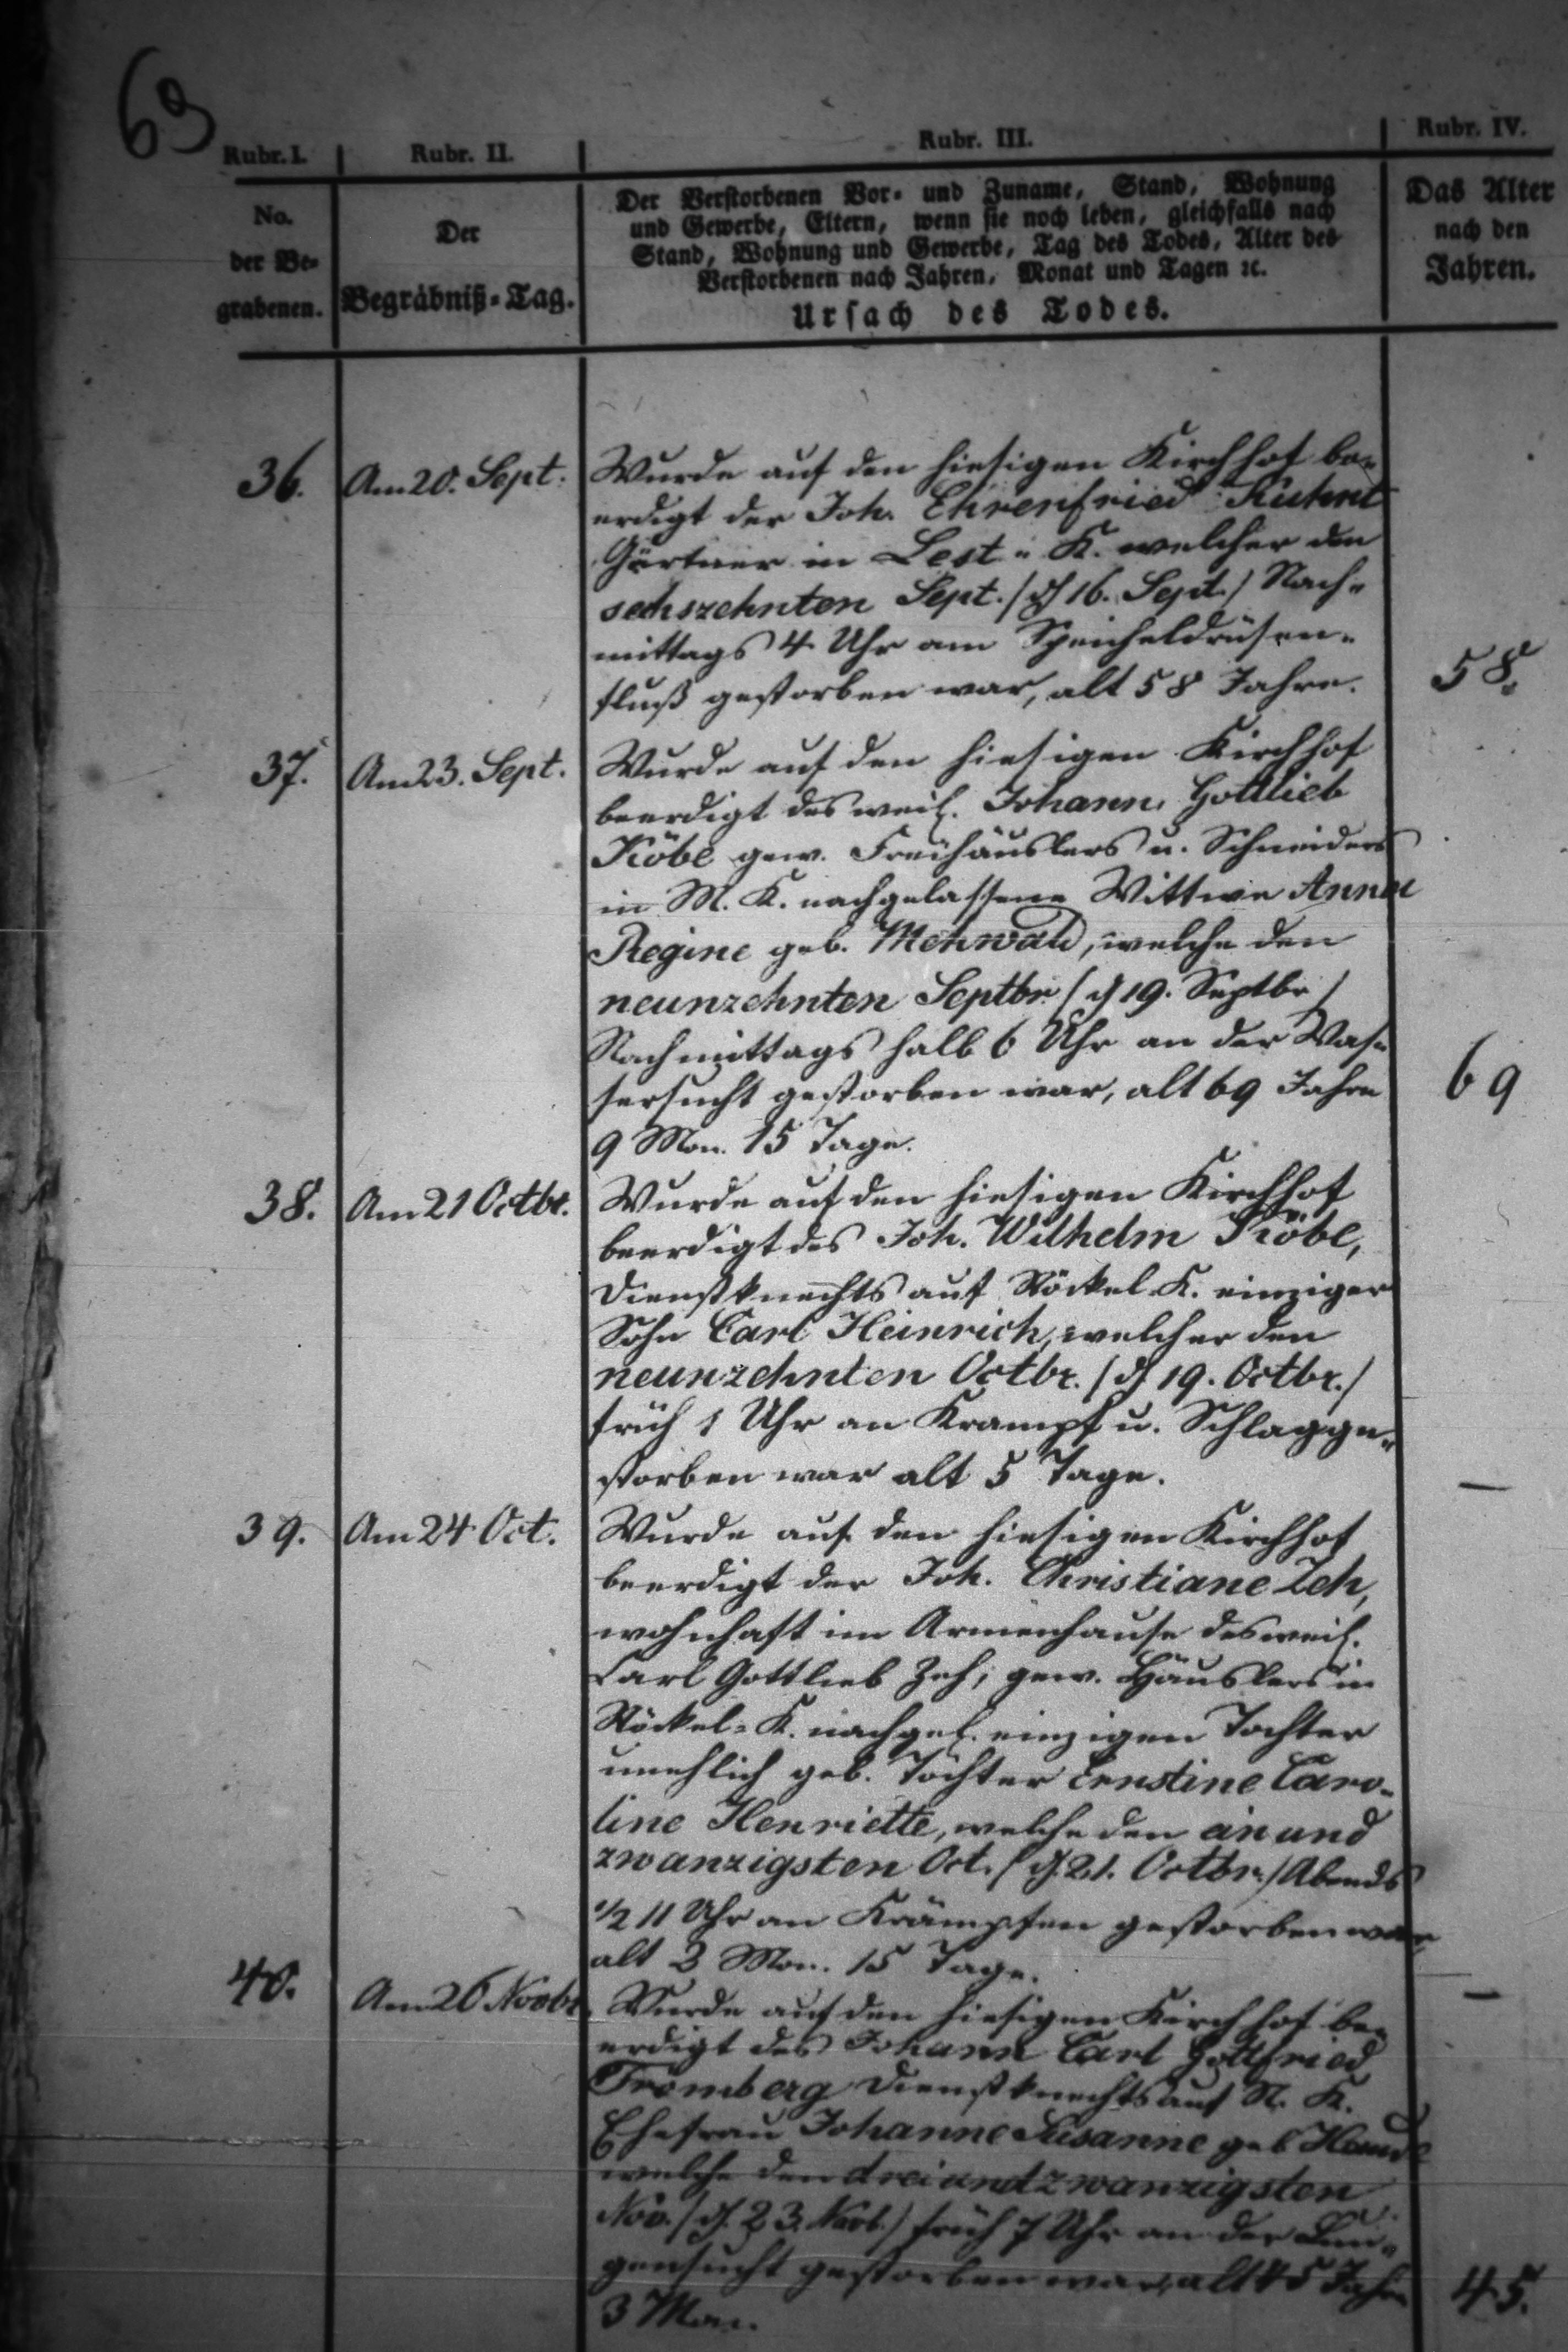 69
Rubr. I. Rubr. II. Rubr. III. Rubr. IV.
No.
der Be=
grabenen.
Der
Begräbniß=Tag.
Der Verstorbenen Vor= und Zuname, Stand, Wohnung
und Gewerbe, Eltern, wenn sie noch leben, gleichfalls nach
Stand, Wohnung und Gewerbe, Tag des Todes, Alter des
Verstorbenen nach Jahren, Monat und Tagen ꝛc.
Ursach des Todes.
Das Alter
nach den
Jahren.
36. Am 20. Sept. Wurde auf den hiesigen Kirchhof be=
erdigt der Joh. Ehrenfried Kuhnt
Gärtner in Lest=K. welcher den
sechszehnten Sept. /d 16. Sept./ Nach=
mittags 4 Uhr am Speicheldrüsen=
fluß gestorben war, alt 58 Jahre. 58.
37. Am 23. Sept. Wurde auf den hiesigen Kirchhof
beerdigt des weil. Johann Gottlieb
Köbe gew. Freihäuslers u. Schneiders
in M. K. nachgelassene Wittwe Anna
Regine geb. Mehwald, welche den
neunzehnten Septbr. /d 19. Septbr/
Nachmittags halb 6 Uhr an der Was=
sersucht gestorben war, alt 69 Jahre 69
9 Mon. 15 Tage.
38. Am 21 Octbr. Wurde auf den hiesigen Kirchhof
beerdigt des Joh. Wilhelm Köbe,
Dienstknechts auf Nöckel K. einziger
Sohn Carl Heinrich, welcher den
neunzehnten Octbr. /d 19. Octbr./
früh 1 Uhr an Krampf u. Schlag ge=
storben war alt 5 Tage. —
39. Am 24 Oct. Wurde auf den hiesigen Kirchhof
beerdigt der Joh. Christiane Zeh,
wohnhaft im Armenhause des weil.
Carl Gottlieb Zeh, gew. Häuslers in
Nöckel=K. nachgel. einzigen Tochter
unehlich geb. Tochter Ernstine Caro=
line Henriette, welche den ein und
zwanzigsten Oct. /d. 21. Octbr./ Abends
1/2 11 Uhr an Krämpfen gestorben war
alt 3 Mon. 15 Tage. —
40. Am 26 Novbr. Wurde auf den hiesigen Kirchhof be=
erdigt des Johann Carl Gottfried
Fromberg Dienstknechts auf N. K.
Ehefrau Johanne Susanne geb
welche den dreiundzwanzigsten
Nov. /d. 23. Nov./ früh 7 Uhr an der Lun=
gensucht gestorben war, alt 45 Jahre 45.
3 Mon.